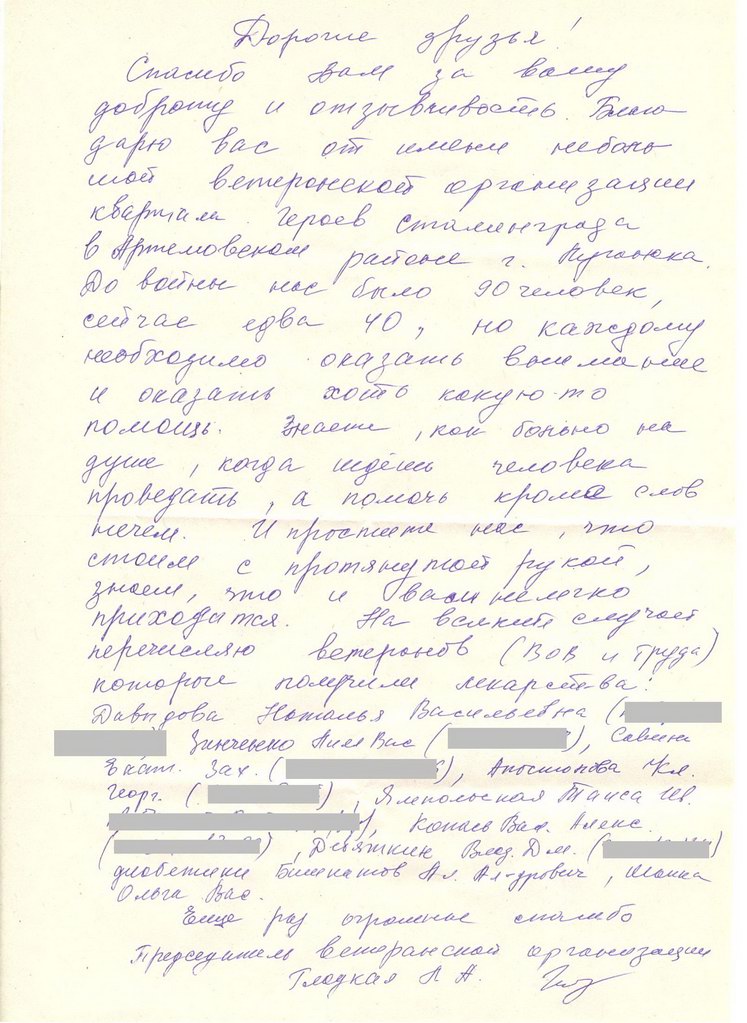 Дорогие друзья!
Спасибо Вам за вашу
доброту и отзывчивость. Благо
дарю вас от имени неболь
шой ветеранской организации
квартала Героев Сталинграда
в Артемовском районе г. Луганска.
До войны нас было 90 человек,
сейчас едва 40, но каждому
необходимо оказать внимание
и оказать хоть какую-то
помощь. Знаете, как больно на
душе, когда идёшь человека
проведать, а помочь кроме слов
нечем. И простите нас, что
стоим с протянутой рукой,
знаем, что и вам нелегко
приходится. На всякий случай
перечисляю ветеранов (ВОВ и труда)
которые получили лекарства:
Давыдова Наталья Васильевна (
Зинченко Вас ( ), Савина
Екат. Зах. ( ), Апостолова Кл.
Георг. ( ), Ямпольская Таиса Ив.
), Вал. Алекс.
( ), Девяткин Влад. Дм. ( )
диабетики Ал. Ал-дрович,
Ольга Вас.
Еще раз огромное спасибо
Председатель ветеранской организации
Гладкая Л. А.